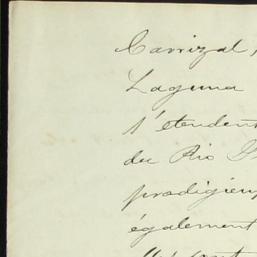 Carrizal,
Laguna
s'étendent
du Rio
prodigieux
également